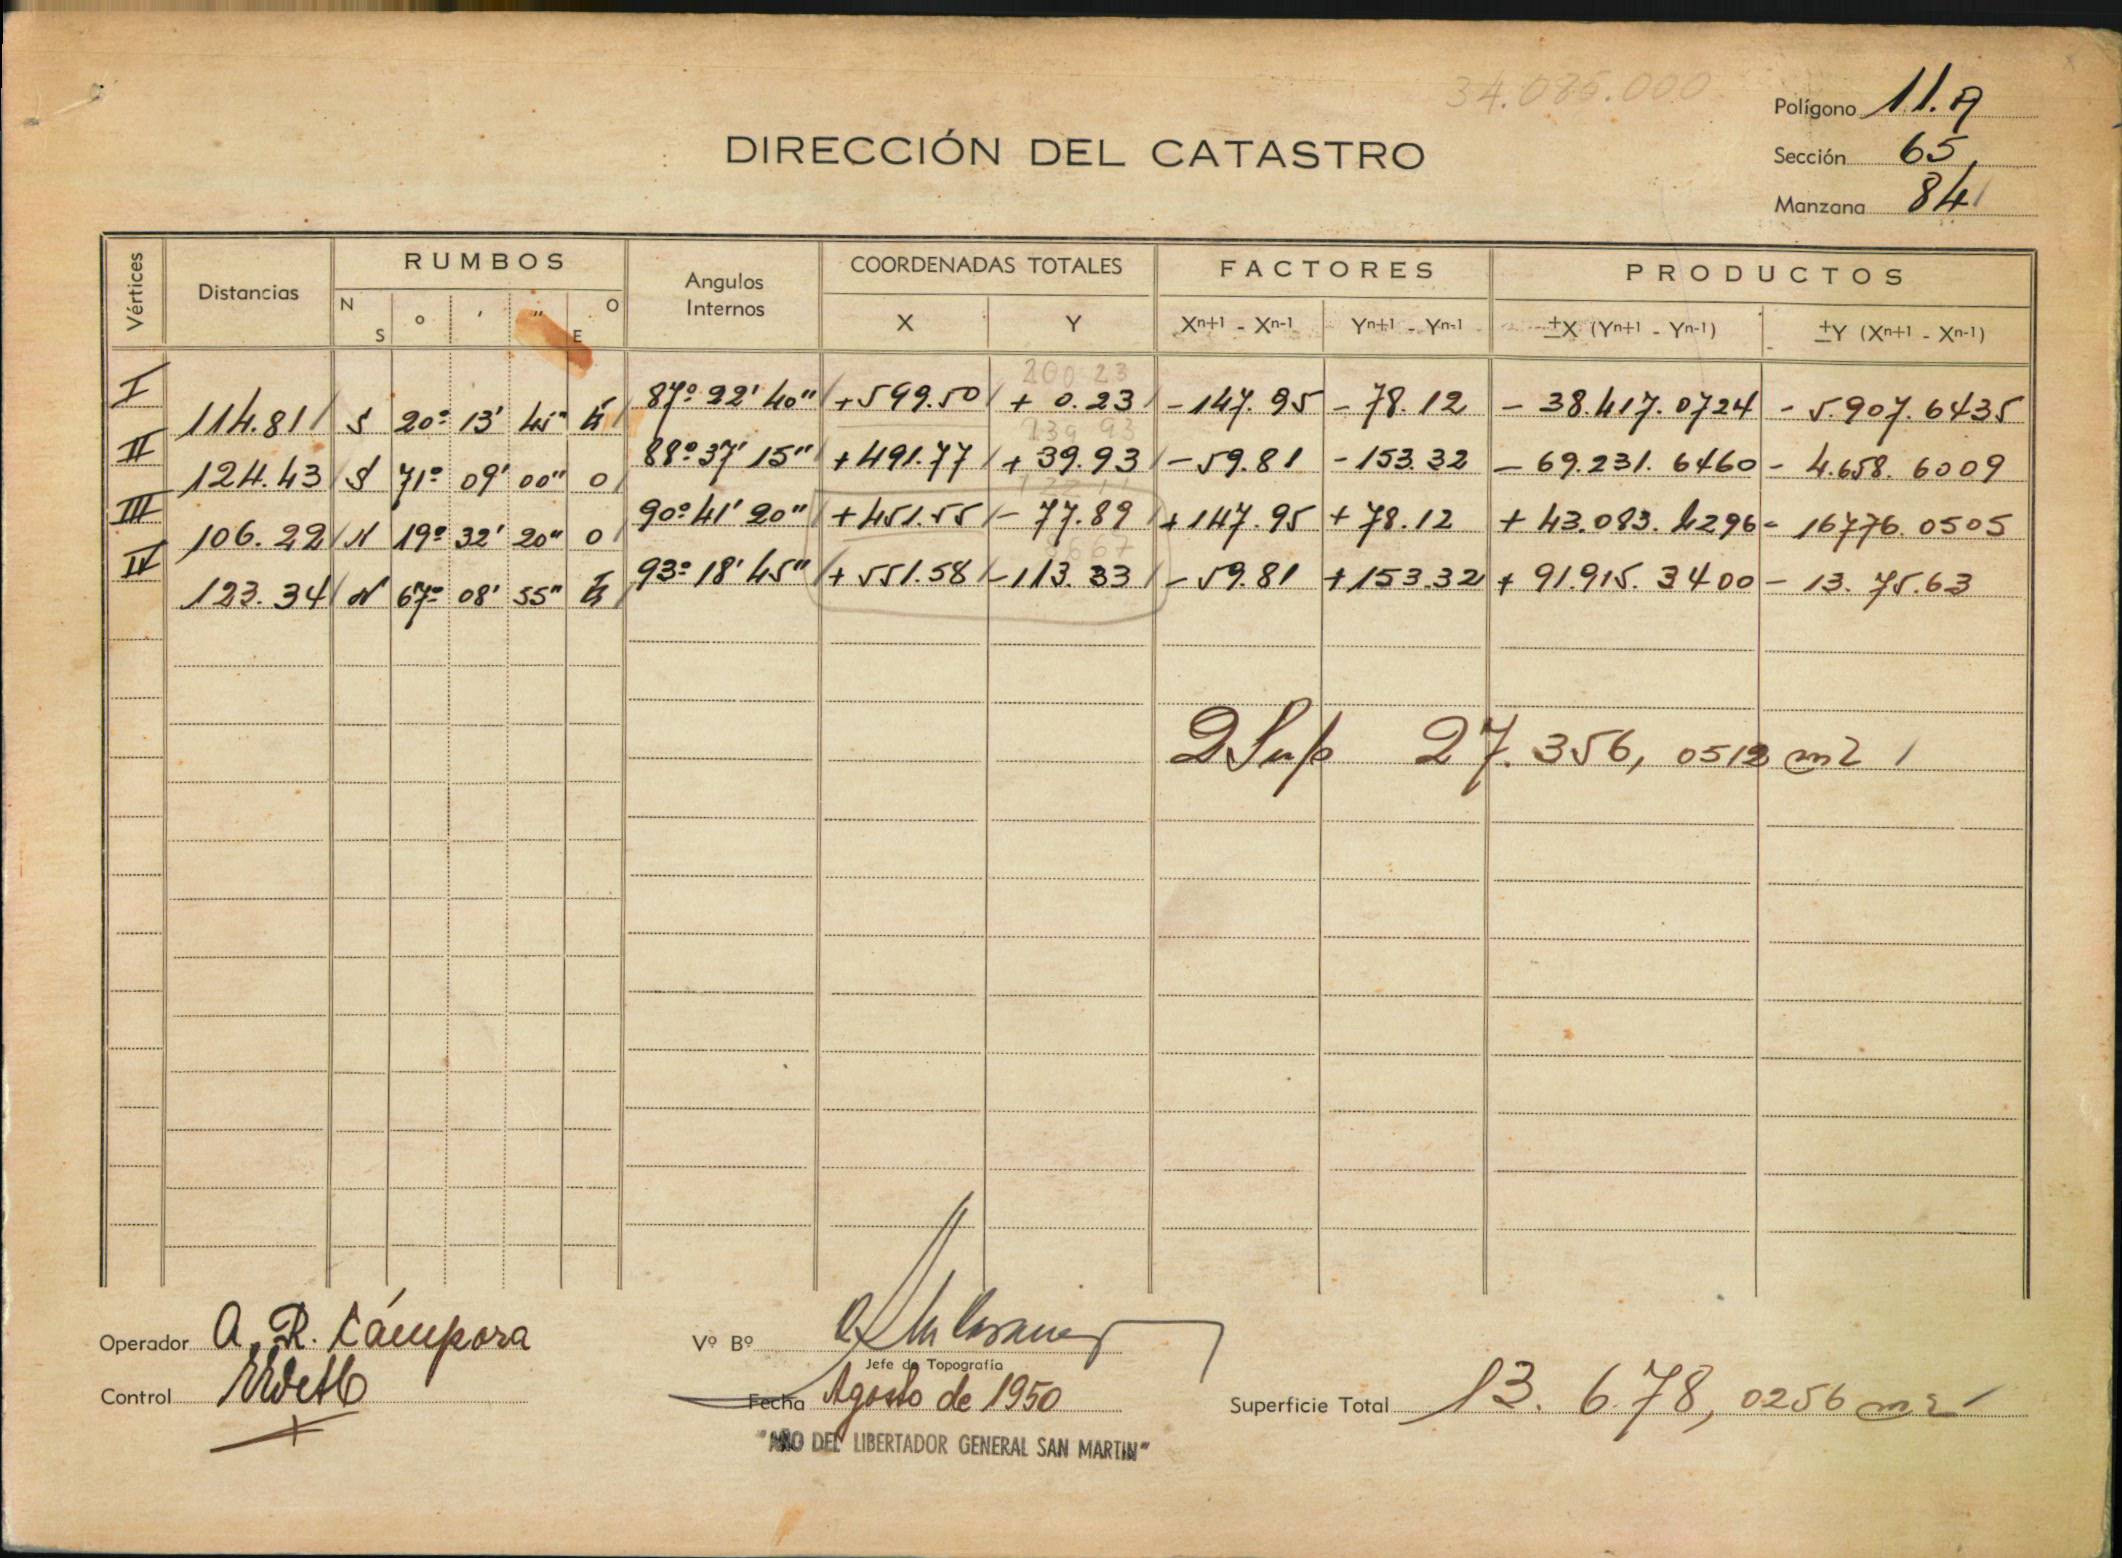 34.085.000
Polígono 11. A
DIRECCIÓN DEL CATASTRO
Sección 65
Manzana 84
Vértices Distancias RUMBOS Angulos Internos COORDENADAS TOTALES FACTORES PRODUCTOS
N S º ' " E O X Y Xn+1 - Xn-1 Yn+1 - Yn-1 ±X (Yn+1 - Yn-1) ±Y (Xn+1 - Xn-1)
200.23
I 87º 22' 40" +599.50 + 0.23 -147.95 -78.12 - 38.417.0724 - 5.907.6435
114.81 S 20º 13' 45" E
239 93
II 88º 37' 15" +491.77 + 39.93 -59.81 -153.32 - 69.231.6460 - 4.658.6009
124.43 S 71º 09' 00" O
III 90º 41' 20" +451.55 - 77.89 +147.95 +78.12 + 43.083.4296 - 16776.0505
106.22 N 19º 32' 20" O
8667
IV 93º 18' 45" +551.58 -113.33 -59.81 +153.32 + 91.915.3400 - 13.75.63
123.34 N 67º 08' 55" E
2 Sup 27.356,0512 m2
Operador A. R. Cámpora Vº Bº
Jefe de Topografía
Control Fecha Agosto de 1950 Superficie Total 13.678,0256 m2
"AÑO DEL LIBERTADOR GENERAL SAN MARTIN"